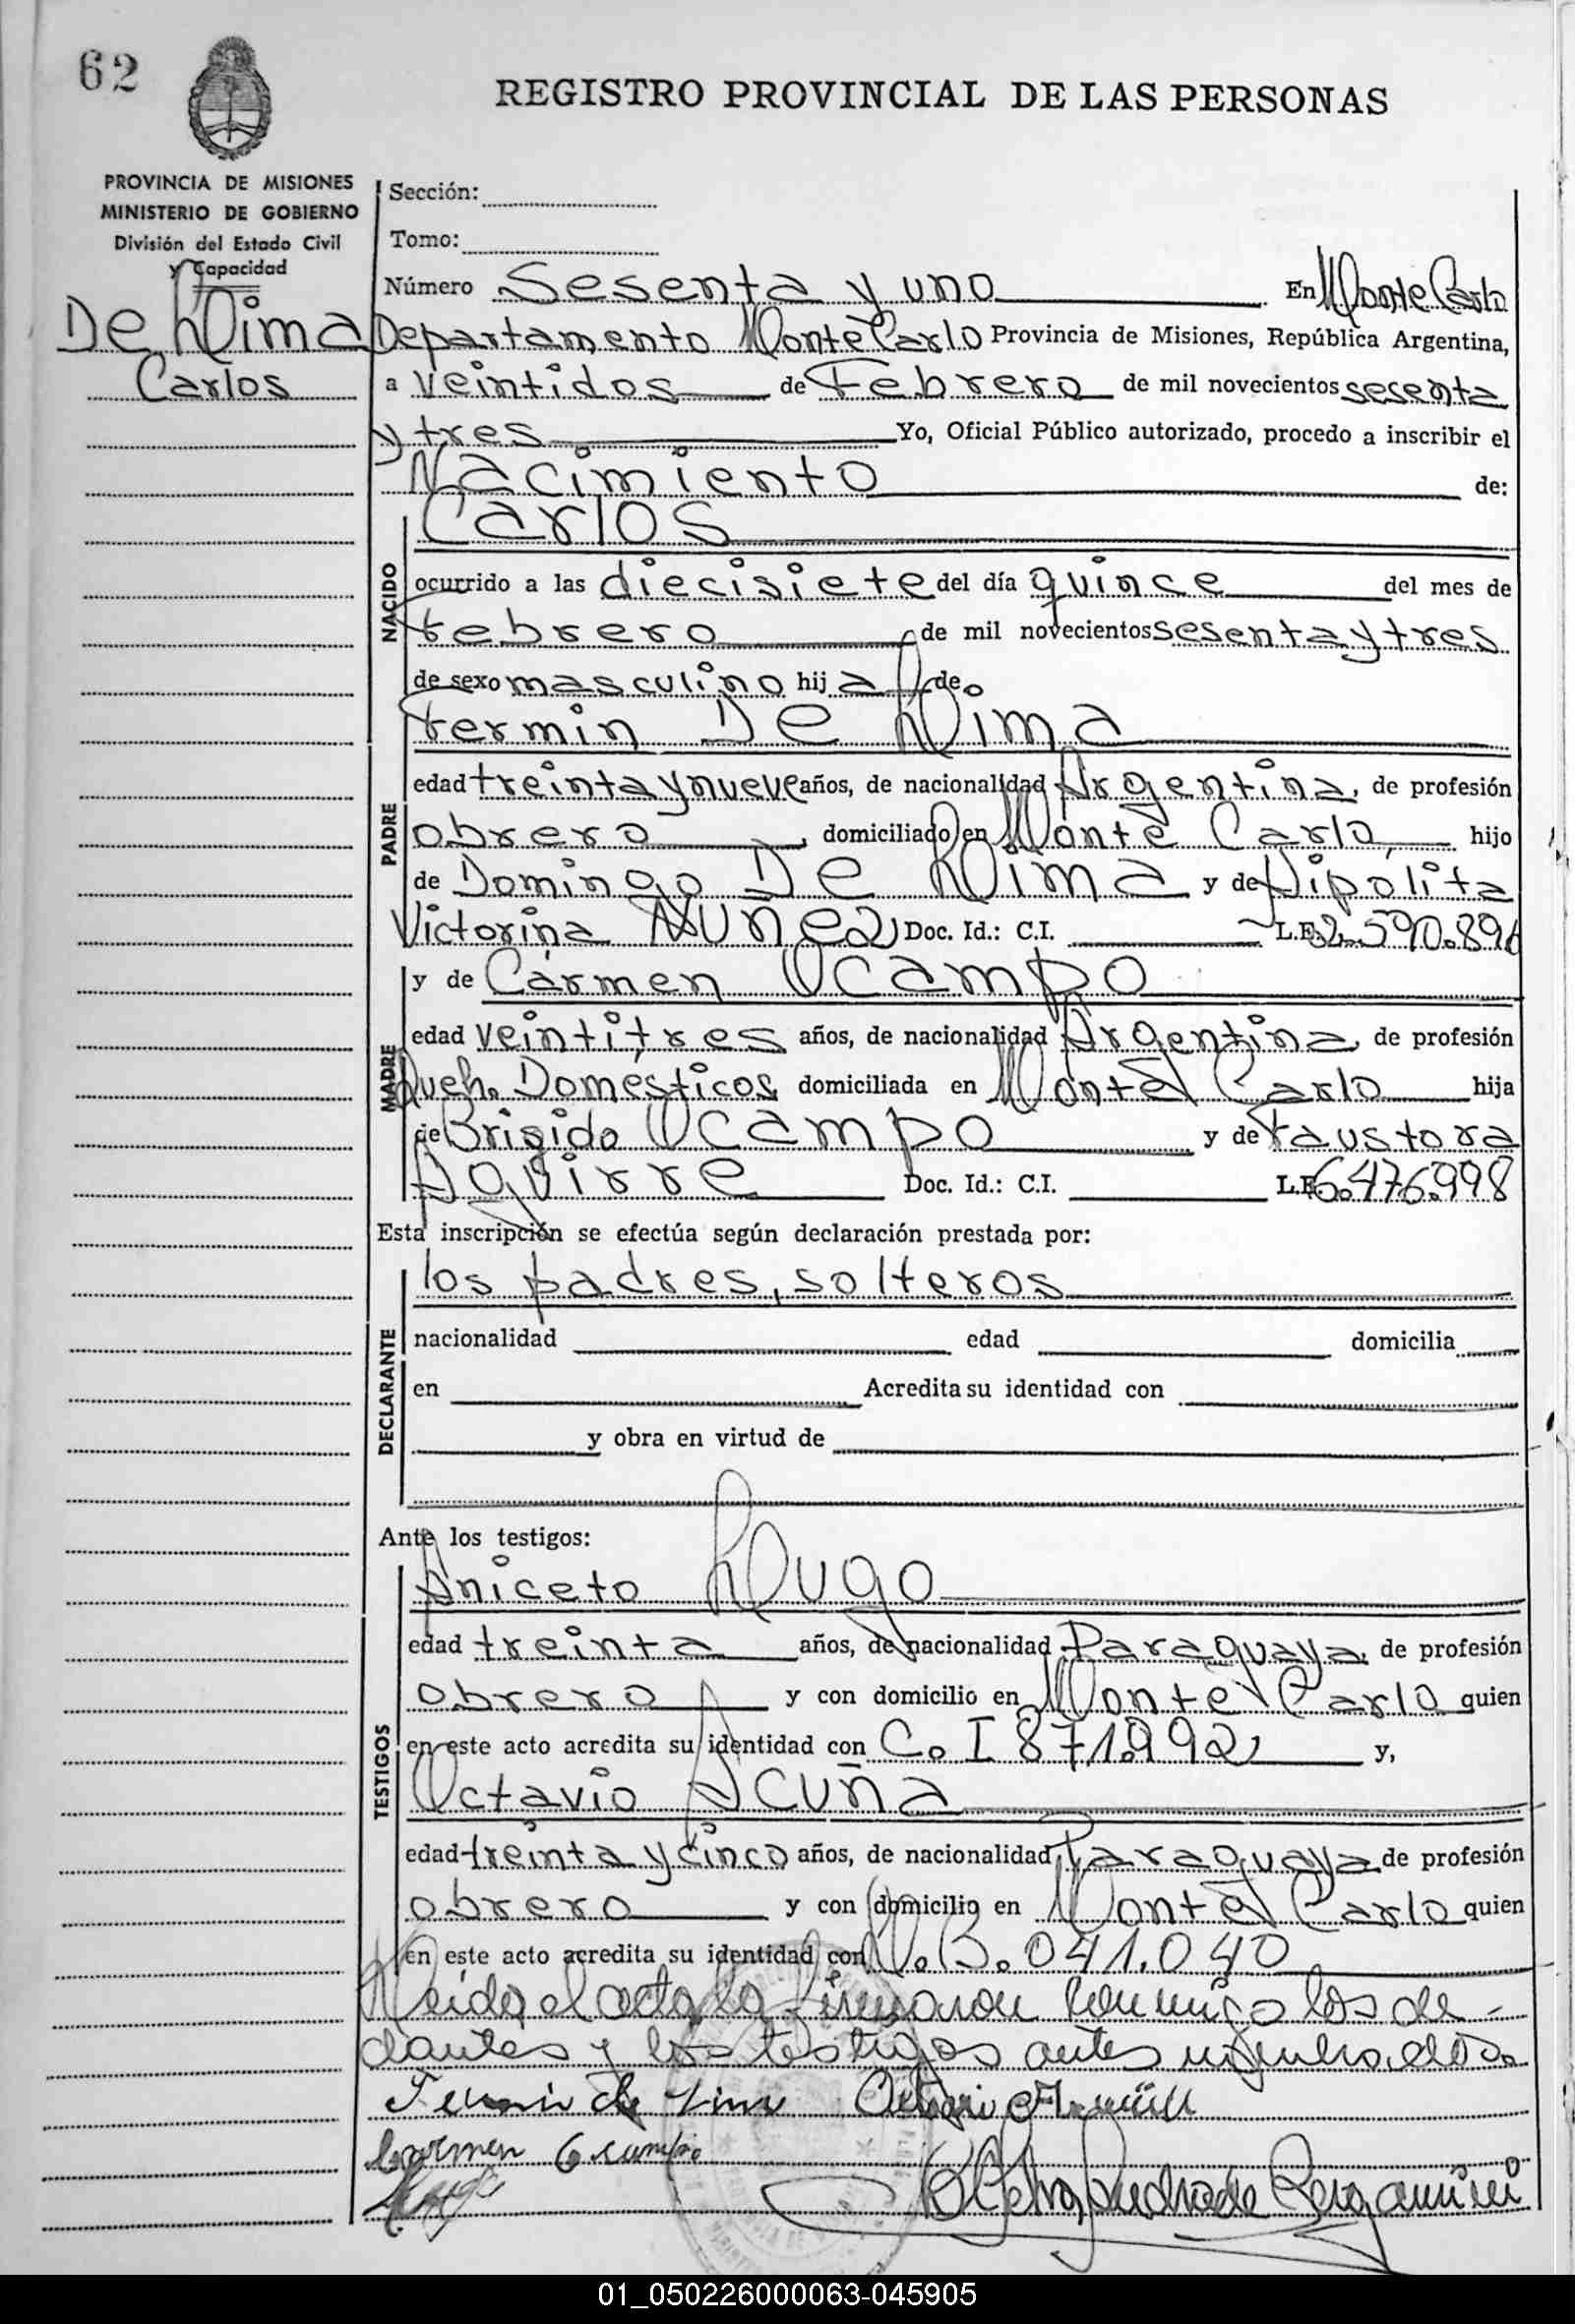 62
REGISTRO PROVINCIAL DE LAS PERSONAS
PROVINCIA DE MISIONES
MINISTERIO DE GOBIERNO
División del Estado Civil
y Capacidad
De Lima
Carlos
Sección:
Tomo:
Número Sesenta y uno En Monte Carlo
Departamento Monte Carlo Provincia de Misiones, República Argentina,
a veintidos de Febrero de mil novecientos sesenta
y tres Yo, Oficial Público autorizado, procedo a inscribir el
Nacimiento de:
NACIDO
Carlos
ocurrido a las diecisiete del día quince del mes de
febrero de mil novecientos sesenta y tres
de sexo masculino hij de
Fermin De Lima
PADRE
edad treinta y nueve años, de nacionalidad Argentina, de profesión
obrero, domiciliado en Monte Carlo, hijo
de Domingo De Lima y de Hipólita
Victorina Nuñez Doc. Id.: C.I. L.E. 2.590.896
MADRE
y de Carmen Ocampo
edad veintitres años, de nacionalidad Argentina, de profesión
Queh. Domésticos domiciliada en Monte Carlo hija
de Brigido Ocampo y de Faustora
Aguirre Doc. Id.: C.I. L.E. 6.476.998
Esta inscripción se efectúa según declaración prestada por:
DECLARANTE
los padres, solteros
nacionalidad edad domicilia
en Acredita su identidad con
y obra en virtud de
Ante los testigos:
TESTIGOS
Aniceto Lugo
edad treinta años, de nacionalidad Paraguaya, de profesión
obrero y con domicilio en Monte Carlo quien
en este acto acredita su identidad con C. I 871.992 y,
Octavio Acuña
edad treinta y cinco años, de nacionalidad Paraguaya de profesión
obrero y con domicilio en Monte Carlo quien
en este acto acredita su identidad con B. 041.040
Leida el acta la firmaron conmigo los de-
clantes y los testigos antes
Fermin de Lima
Carmen Ocampo
01_050226000063-045905